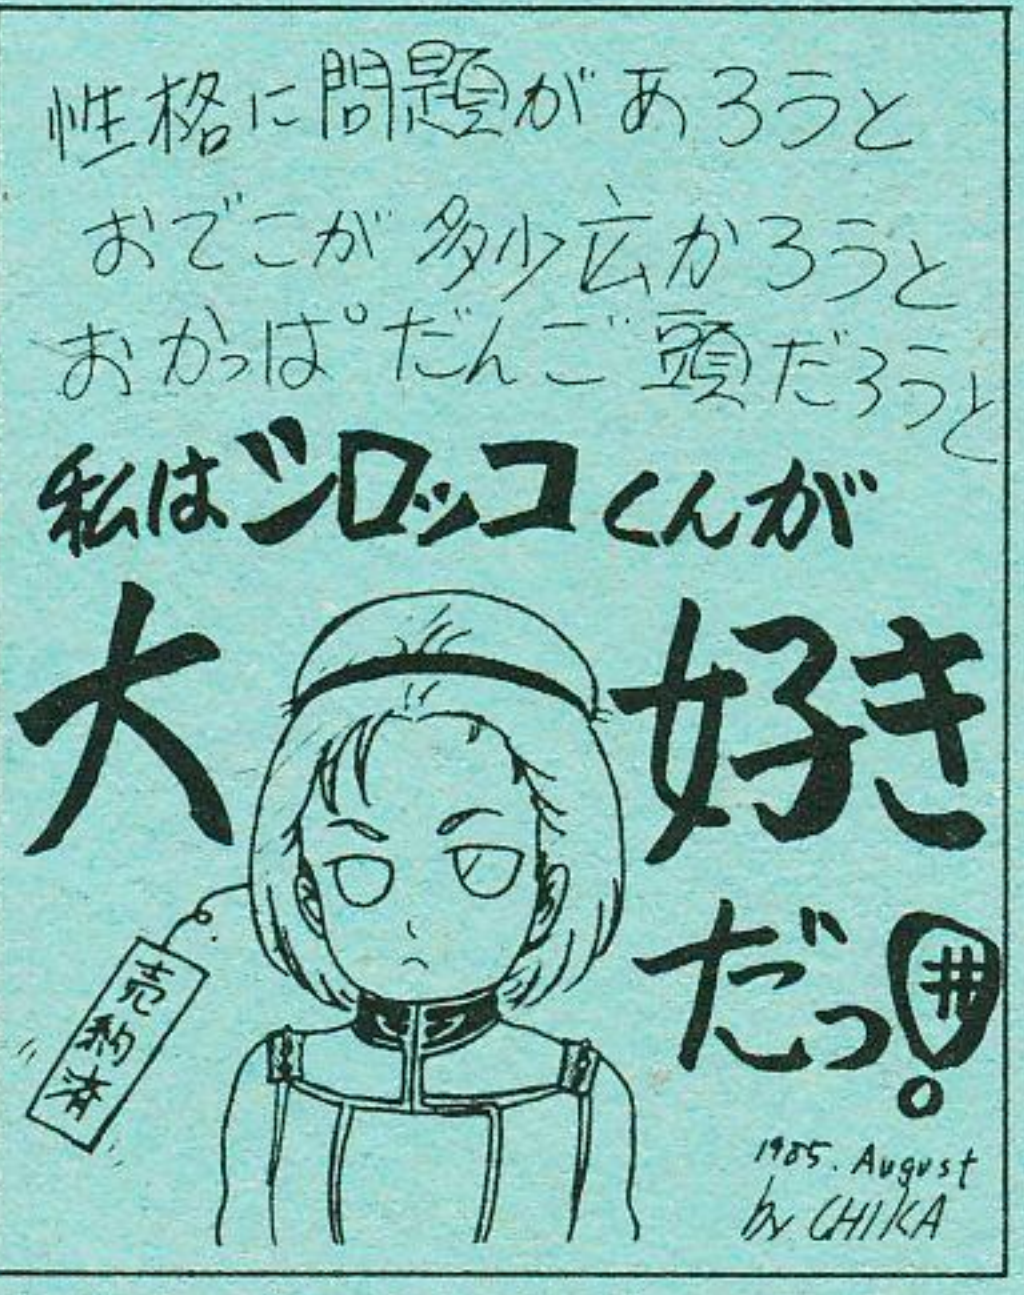 性格に問題があろうと
おでこが多少広かろうと
おかっぱだんご頭だろうと
私はシロッコくんが
大好き
だっ!
売約済
1985. August
by CHIKA